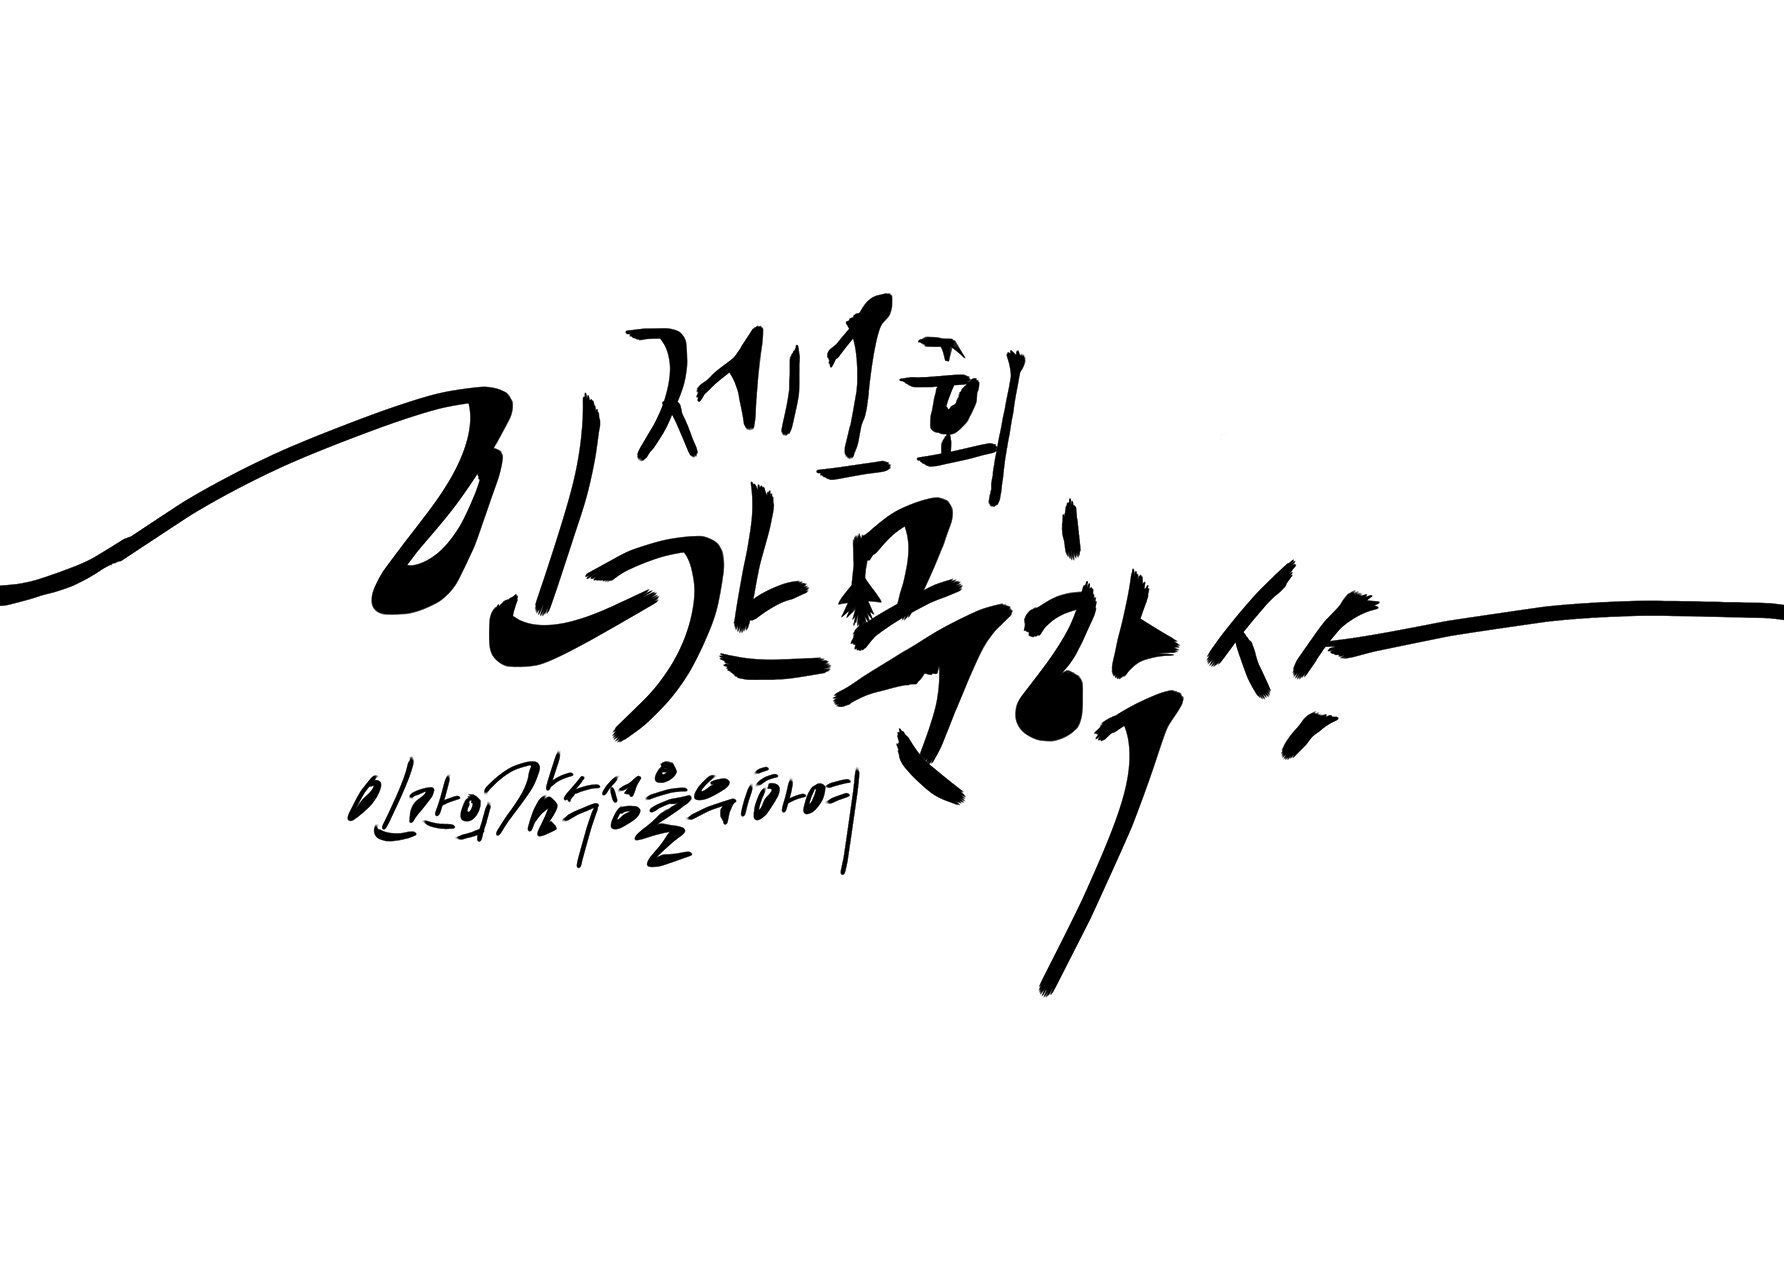 제1회
인간문학상
인간의감수성을위하여